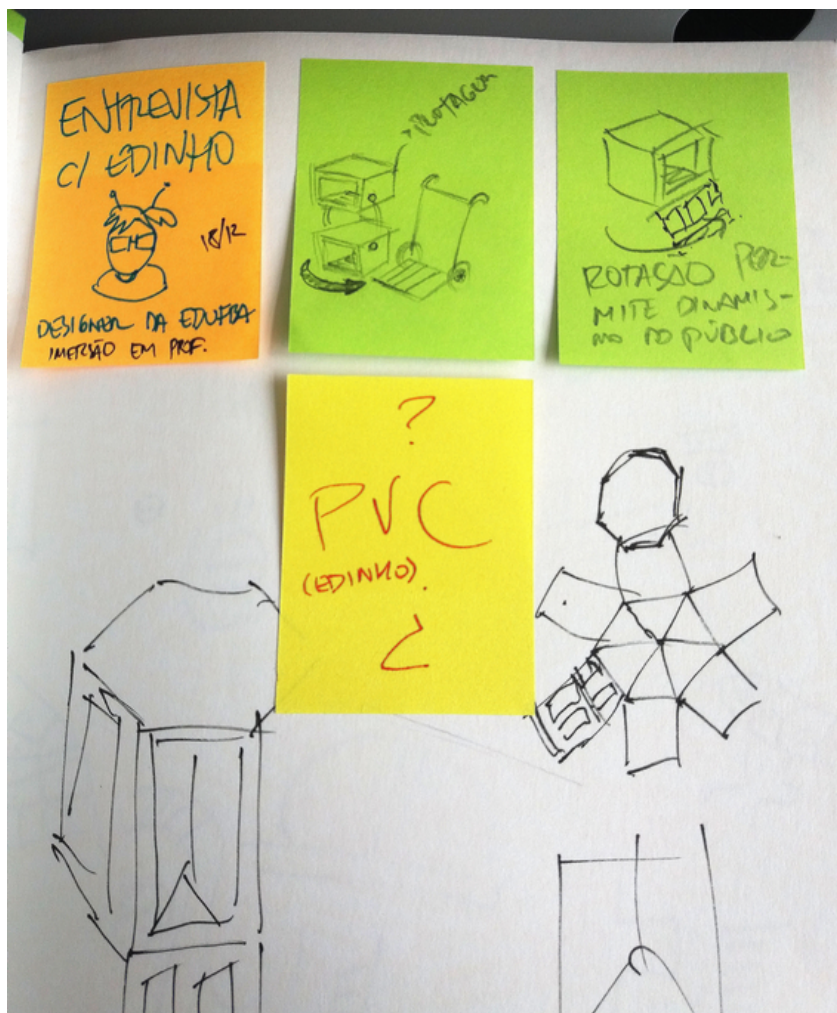 ENTREVISTA
C/ EDINHO
18/12
DESIGNER DA EDUFBA
IMERSÃO EM PROF.
ROTAÇÃO PER-
MITE DINAMIS-
MO DO PÚBLICO
?
PVC
(EDINHO).
¿